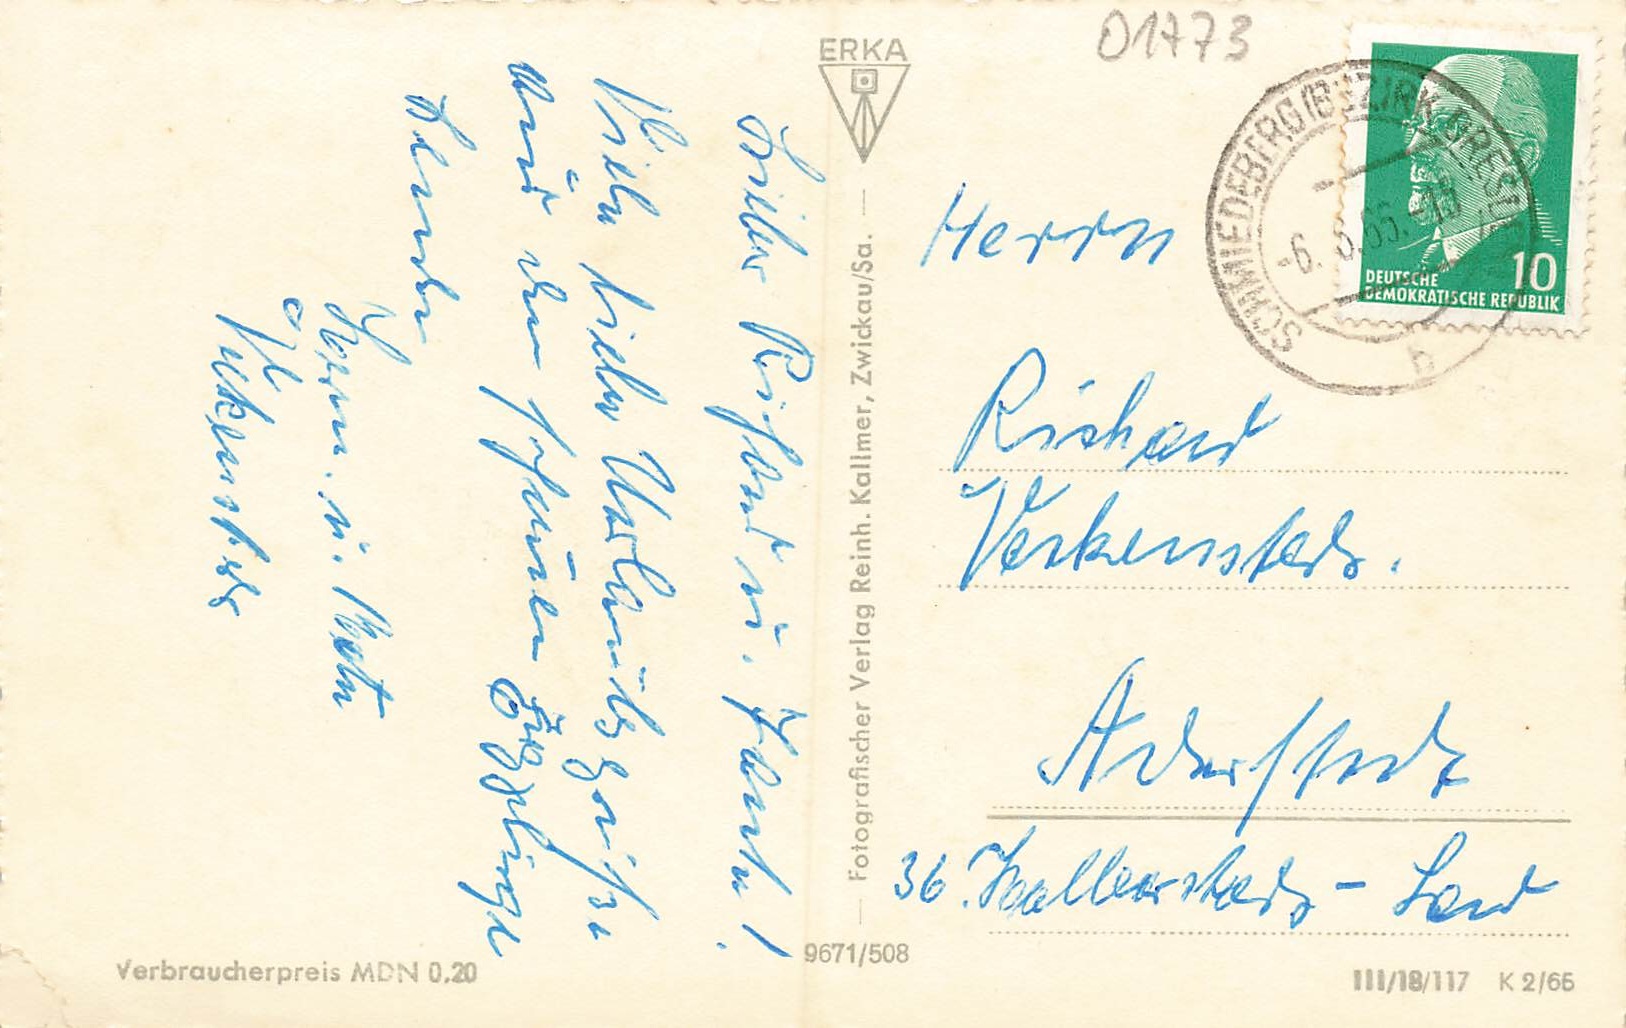 01773
ERKA
DEUTSCHE
DEMOKRATISCHE REPUBLIK
10
SCHMIEDEBERG (BEZIRK DRESDEN)
-6. 8.65.-18
h
Lieber Richard u. Tante!
Viele liebe Urlaubsgrüße
aus dem schönen Erzgebirge
senden
u.
Herrn
Richard
Verkenstedt.
Aderstedt
36 Halberstadt - Land
Fotografischer Verlag Reinh. Kallmer, Zwickau/Sa.
9671/508
Verbraucherpreis MDN 0,20
III/18/117 K 2/65